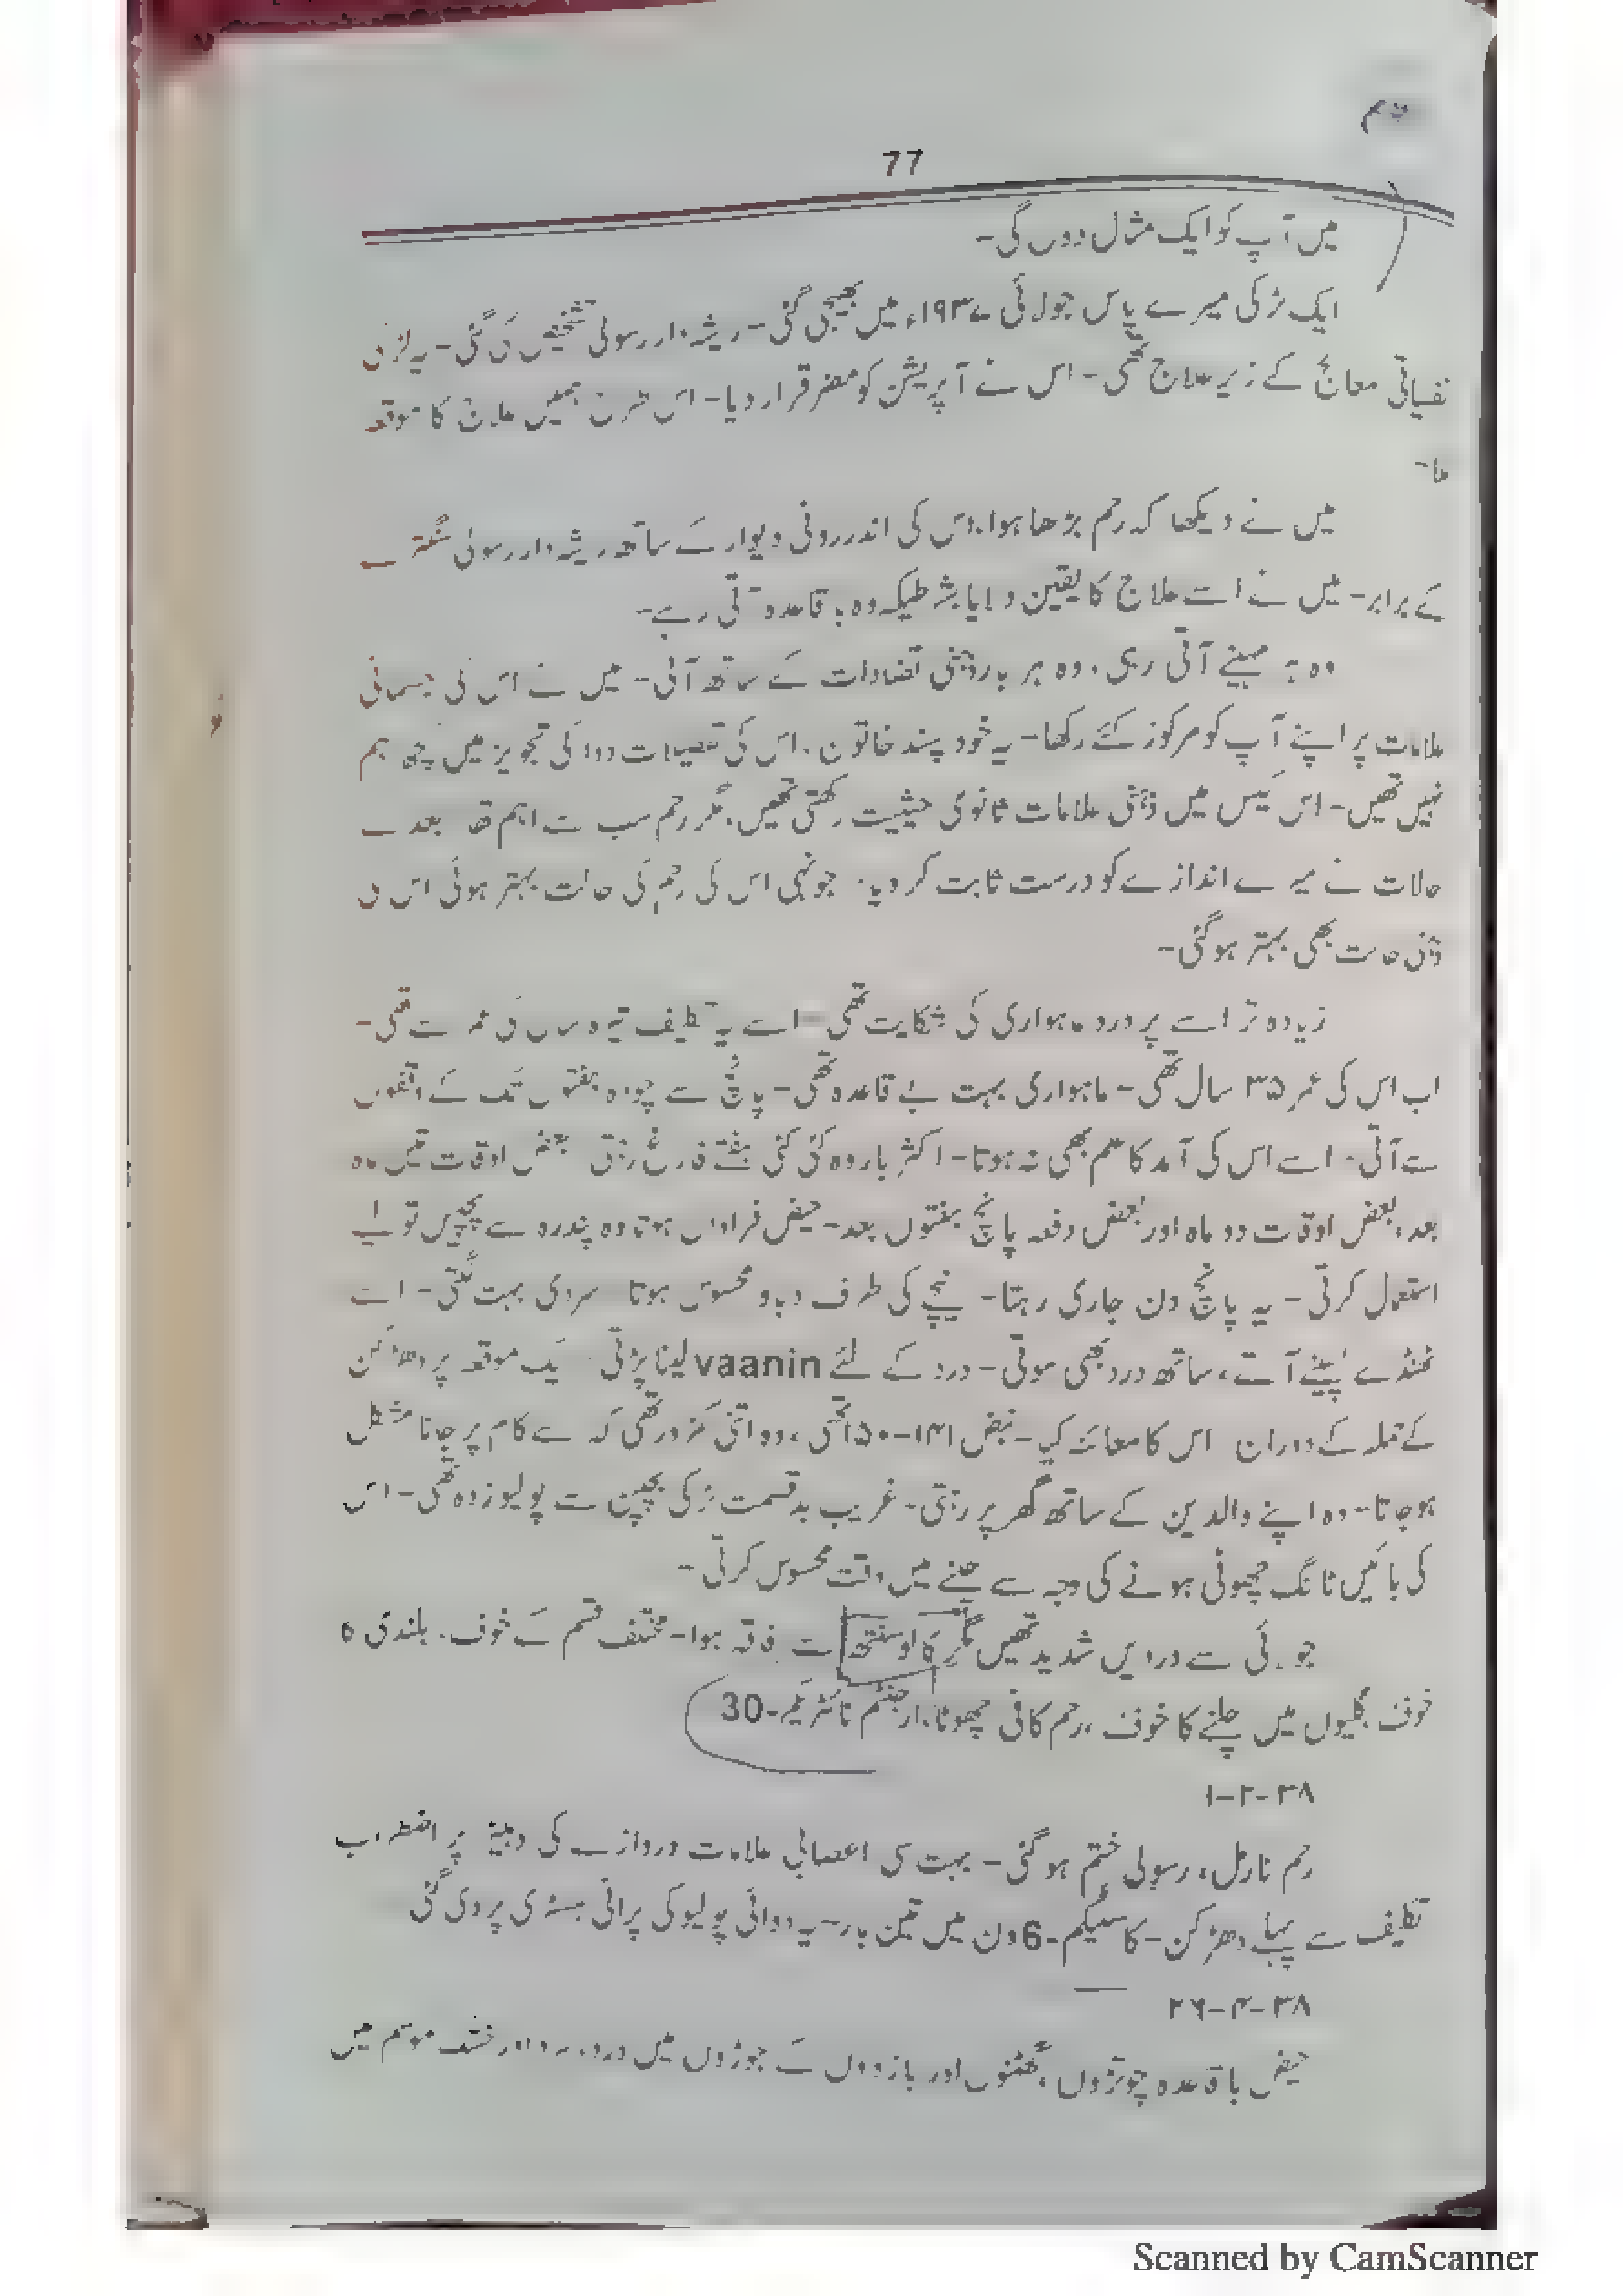 77
میں آپ کو ایک مثال دوں گی-
ایک لڑکی میرے پاس جولائی ۱۹۳۷ء میں بھیجی گئی- ریشہ دار رسولی تشخیص کی گئی- یہ لڑکی
نفسیاتی معالج کے زیر علاج تھی- اس نے آپریشن کو مضر قرار دیا- اس طرح ہمیں علاج کا موقعہ
ملا-
میں نے دیکھا کہ رحم بڑھا ہوا، اس کی اندرونی دیوار کے ساتھ ریشہ دار رسولی سنگترے
کے برابر- میں نے اسے علاج کا یقین دلایا بشرطیکہ وہ باقاعدہ آتی رہے-
وہ ہر مہینے آتی رہی، وہ ہر بار ذہنی تضادات کے ساتھ آئی- میں نے اس کی جسمانی
علامات پر اپنے آپ کو مرکوز کئے رکھا- یہ خود پسند خاتون، اس کی تفصیلات دوا کی تجویز میں کچھ اہم
نہیں تھیں- اس کیس میں ذہنی علامات ثانوی حیثیت رکھتی تھیں، مگر رحم سب سے اہم تھا بعد کے
حالات نے میرے اندازے کو درست ثابت کر دیا- جونہی اس کی رحم کی حالت بہتر ہوئی اس کی
ذہنی حالت بھی بہتر ہو گئی-
زیادہ تر اسے پر درد ماہواری کی شکایت تھی- اسے یہ تکلیف تیرہ سال کی عمر سے تھی-
اب اس کی عمر ۳۵ سال تھی- ماہواری بہت بے قاعدہ تھی- پانچ سے چودہ ہفتوں تک کے وقفوں
سے آتی- اسے اس کی آمد کا علم بھی نہ ہوتا- اکثر بار وہ کئی کئی ہفتے فارغ رہتی بعض اوقات تین ماہ
بعد، بعض اوقات دو ماہ اور بعض دفعہ پانچ ہفتوں بعد- حیض فراواں ہوتا وہ پندرہ سے پچیس تولیے
استعمال کرتی- یہ پانچ دن جاری رہتا- نیچے کی طرف دباؤ محسوس ہوتا سردی بہت لگتی- اسے
ٹھنڈے پسینے آتے، ساتھ درد بھی ہوتی- درد کے لئے vaanin لینا پڑتی- ایک موقعہ پر دھڑکن
کے حملہ کے دوران اس کا معائنہ کیا- نبض ۱۴۱-۱۵۰ تھی، وہ اتنی کمزور تھی کہ اسے کام پر جانا مشکل
ہو جاتا- وہ اپنے والدین کے ساتھ گھر پر رہتی- غریب بدقسمت لڑکی بچپن سے پولیو زدہ تھی- اس
کی بائیں ٹانگ چھوٹی ہونے کی وجہ سے چلنے میں دقت محسوس کرتی-
جولائی سے دردیں شدید تھیں مگر کالوسنتھ سے افاقہ ہوا- مختلف قسم کے خوف- بلندی کا
خوف گلیوں میں چلنے کا خوف، رحم کافی چھوٹا، ارجنٹم نائٹریکم-30
۱-۲-۳۸
رحم نارمل، رسولی ختم ہو گئی- بہت سی اعصابی علامات دروازے کی دہلیز پر اضطراب
تکلیف سے پہلے دھڑکن- کاسٹیکم-6 دن میں تین بار- یہ دوائی پولیو کی پرانی ہسٹری پر دی گئی
۲۶-۴-۳۸
حیض باقاعدہ چوتڑوں، گھٹنوں اور بازوؤں کے جوڑوں میں درد، سرد اور خشک موسم میں
Scanned by CamScanner